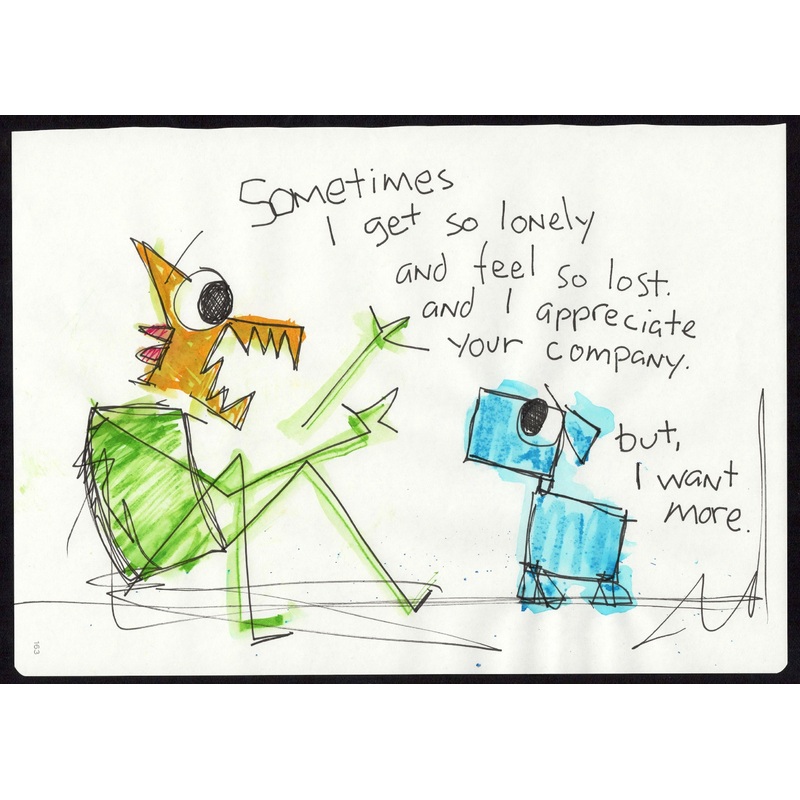 Sometimes
I get so lonely
and feel so lost.
and I appreciate
your company.
but,
I want
more.
163